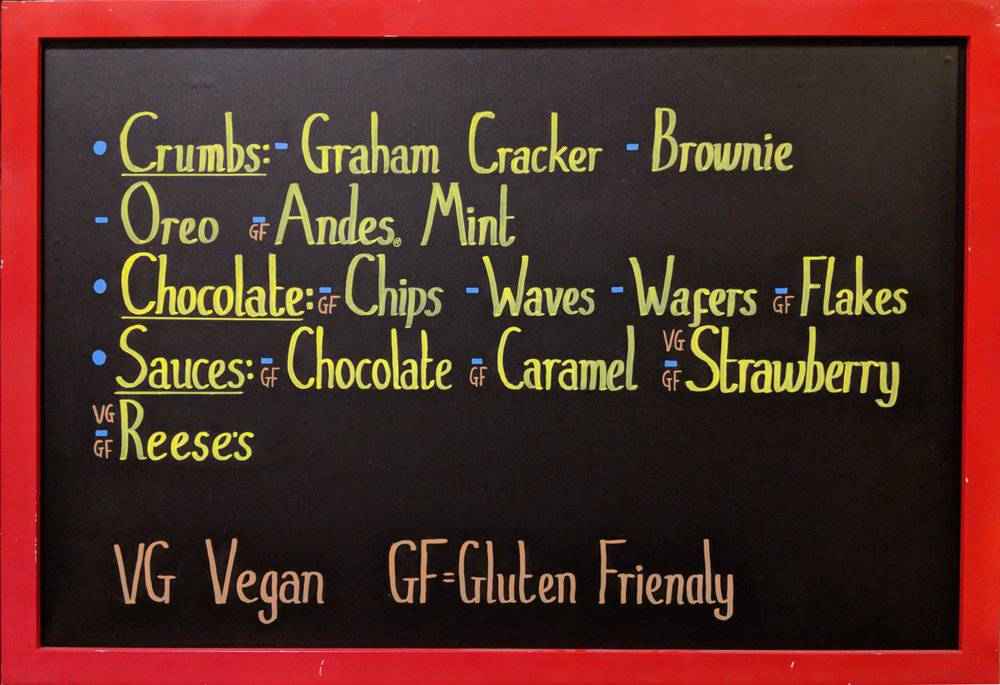 • Crumbs: - Graham Cracker - Brownie
- Oreo GF - Andes® Mint
• Chocolate: GF - Chips - Waves - Wafers GF - Flakes
• Sauces: GF - Chocolate GF - Caramel VG GF - Strawberry
VG GF - Reese's
VG Vegan GF=Gluten Friendly